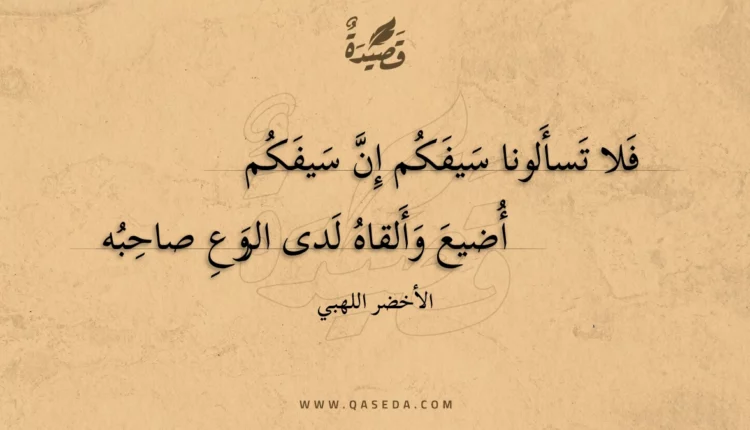 قَصِيدَةٌ
فَلا تَسأَلونا سَيفَكُم إِنَّ سَيفَكُم
أُضيعَ وَأَلقاهُ لَدى الوَعِ صاحِبُه
الأخضر اللهبي
WWW.QASEDA.COM